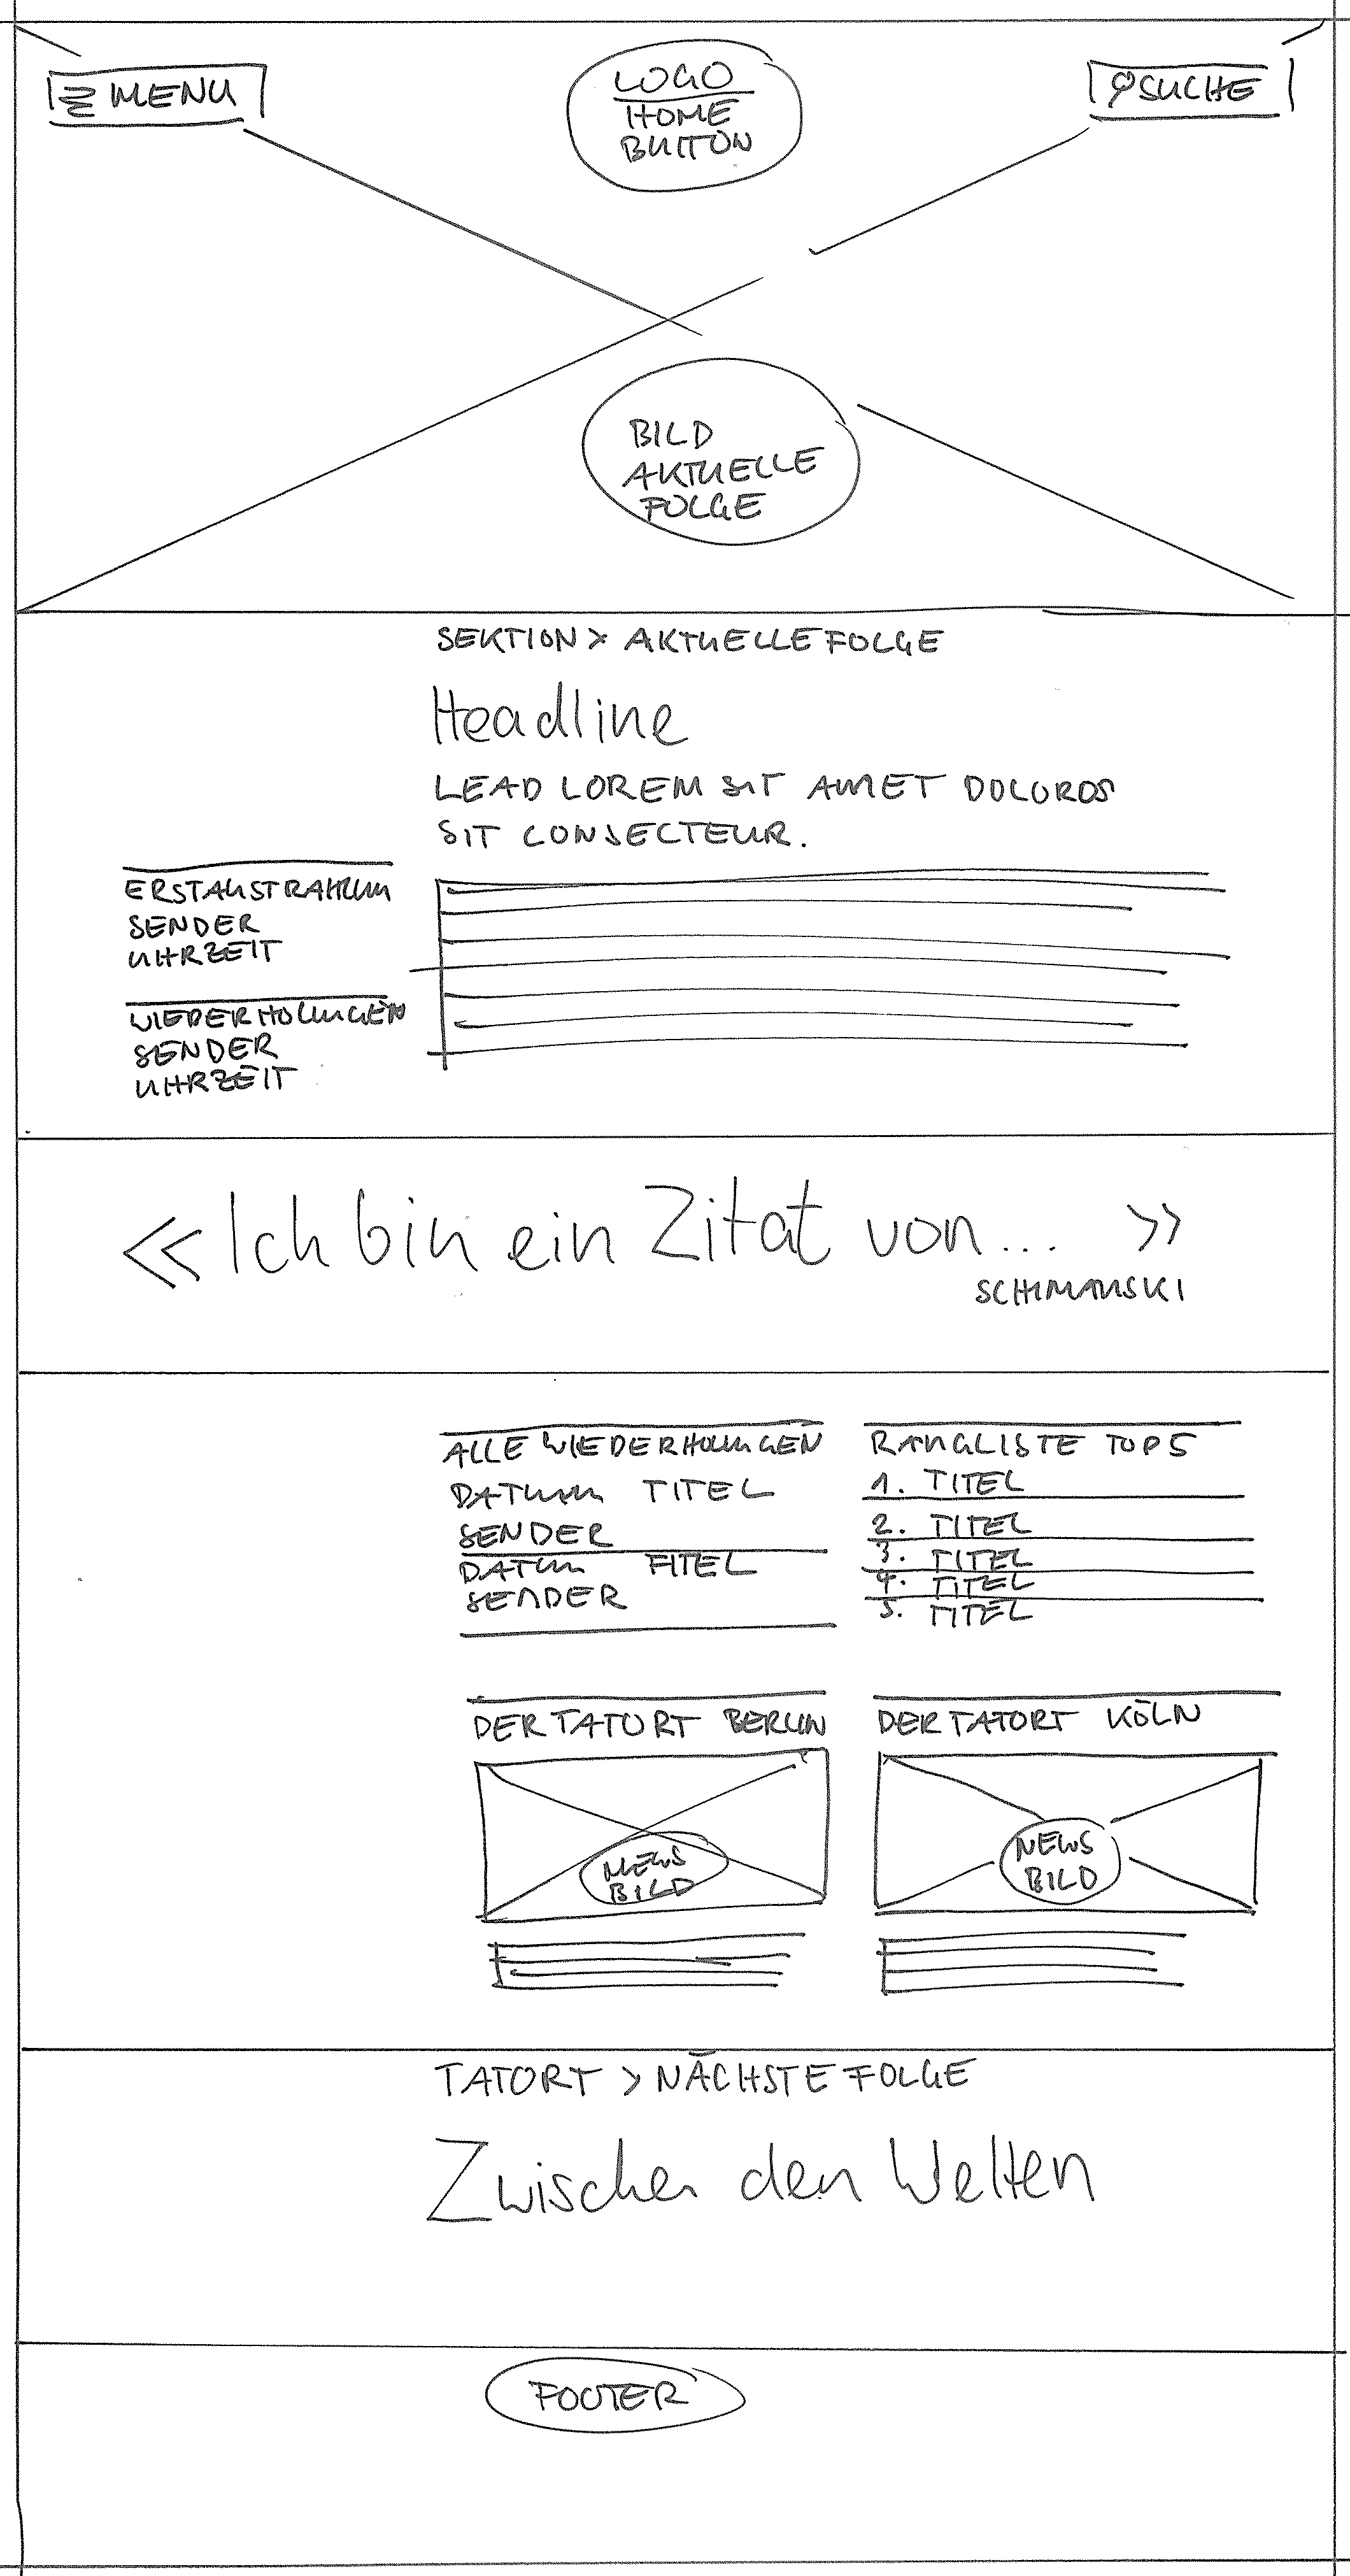 MENU
LOGO
HOME
BUTTON
SUCHE
BILD
AKTUELLE
FOLGE
SEKTION > AKTUELLE FOLGE
Headline
LEAD LOREM SIT AMET DOLOROS
SIT CONSECTEUR.
ERSTAUSTRAHLUNG
SENDER
UHRZEIT
WIEDERHOLUNGEN
SENDER
UHRZEIT
<< Ich bin ein Zitat von... >>
SCHIMANSKI
ALLE WIEDERHOLUNGEN
DATUM TITEL
SENDER
DATUM TITEL
SENDER
RANGLISTE TOP 5
1. TITEL
2. TITEL
3. TITEL
4. TITEL
5. TITEL
DER TATORT BERLIN
NEWS
BILD
DER TATORT KÖLN
NEWS
BILD
TATORT > NÄCHSTE FOLGE
Zwischen den Welten
FOOTER